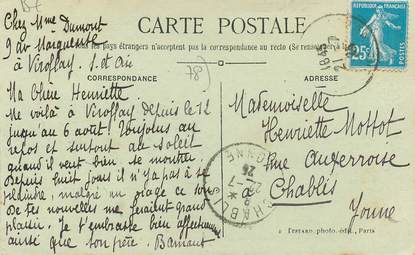 Chez Mme Dumont
9 av Marguerite
à Viroflay. S. et Oise
CARTE POSTALE
les pays étrangers n'acceptent pas la correspondance au recto (Se rense
CORRESPONDANCE
ADRESSE
Ma Chère Henriette
Me voilà à Viroflay depuis le 12
jusqu'au 6 août! Toujours au
repos et surtout au soleil
quand il veut bien se montrer
Depuis huit jours il n'y a pas à se
plaindre, malgré un orage ce soir
De tes nouvelles me feraient grand
plaisir. Je t'embrasse bien affectueusement
ainsi que ton père.
Mademoiselle
Henriette Mottot
Rue Auxerroise
Chablis
Yonne
RÉPUBLIQUE FRANÇAISE
25c
POSTES
1845
CHABLIS
YONNE
TESTARD, photo. édit., Paris